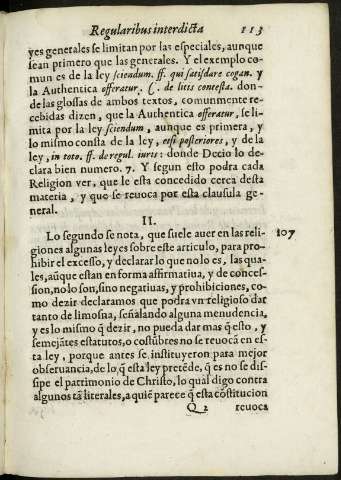 Regularibus interdicta 113
yes generales se limitan por las especiales, aunque
sean primero que las generales. Y el exemplo co-
mun es de la ley sciendum. ff. qui satisdare cogan. y
la Authentica offeratur. C. de litis contesta. don-
de las glossas de ambos textos, comunmente re-
cebidas dizen, que la Authentica offeratur, se li-
mita por la ley sciendum, aunque es primera, y
lo mismo consta de la ley, etsi posteriores, y de la
ley, in toto. ff. de regul. iuris: donde Decio lo de-
clara bien numero. 7. Y segun esto podra cada
Religion ver, que le esta concedido cerca desta
materia, y que se reuoca por esta clausula ge-
neral.
II.
Lo segundo se nota, que suele auer en las reli- 107
giones algunas leyes sobre este articulo, para pro-
hibir el excesso, y declarar lo que no lo es, las qua-
les, aũque estan en forma affirmatiua, y de conces-
sion, no lo son, sino negatiuas, y prohibiciones, co-
mo dezir declaramos que podra vn religioso dar
tanto de limosna, señalando alguna menudencia,
y es lo mismo q̃ dezir, no pueda dar mas q̃ esto, y
semejãtes estatutos, o costũbres no se reuocã en es-
ta ley, porque antes se instituyeron para mejor
obseruancia, de lo q̃ esta ley pretẽde, q̃ es no se dis-
sipe el patrimonio de Christo, lo qual digo contra
algunos tã literales, a quiẽ parece q̃ esta cõstitucion
Q 2 reuoca